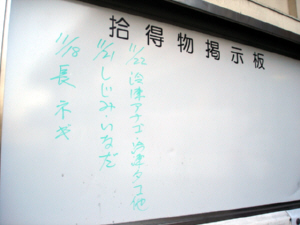 拾得物掲示板
11/22 冷凍アナゴ・冷凍タコ他
11/21 しじみ・いなだ
11/18 長ネギ